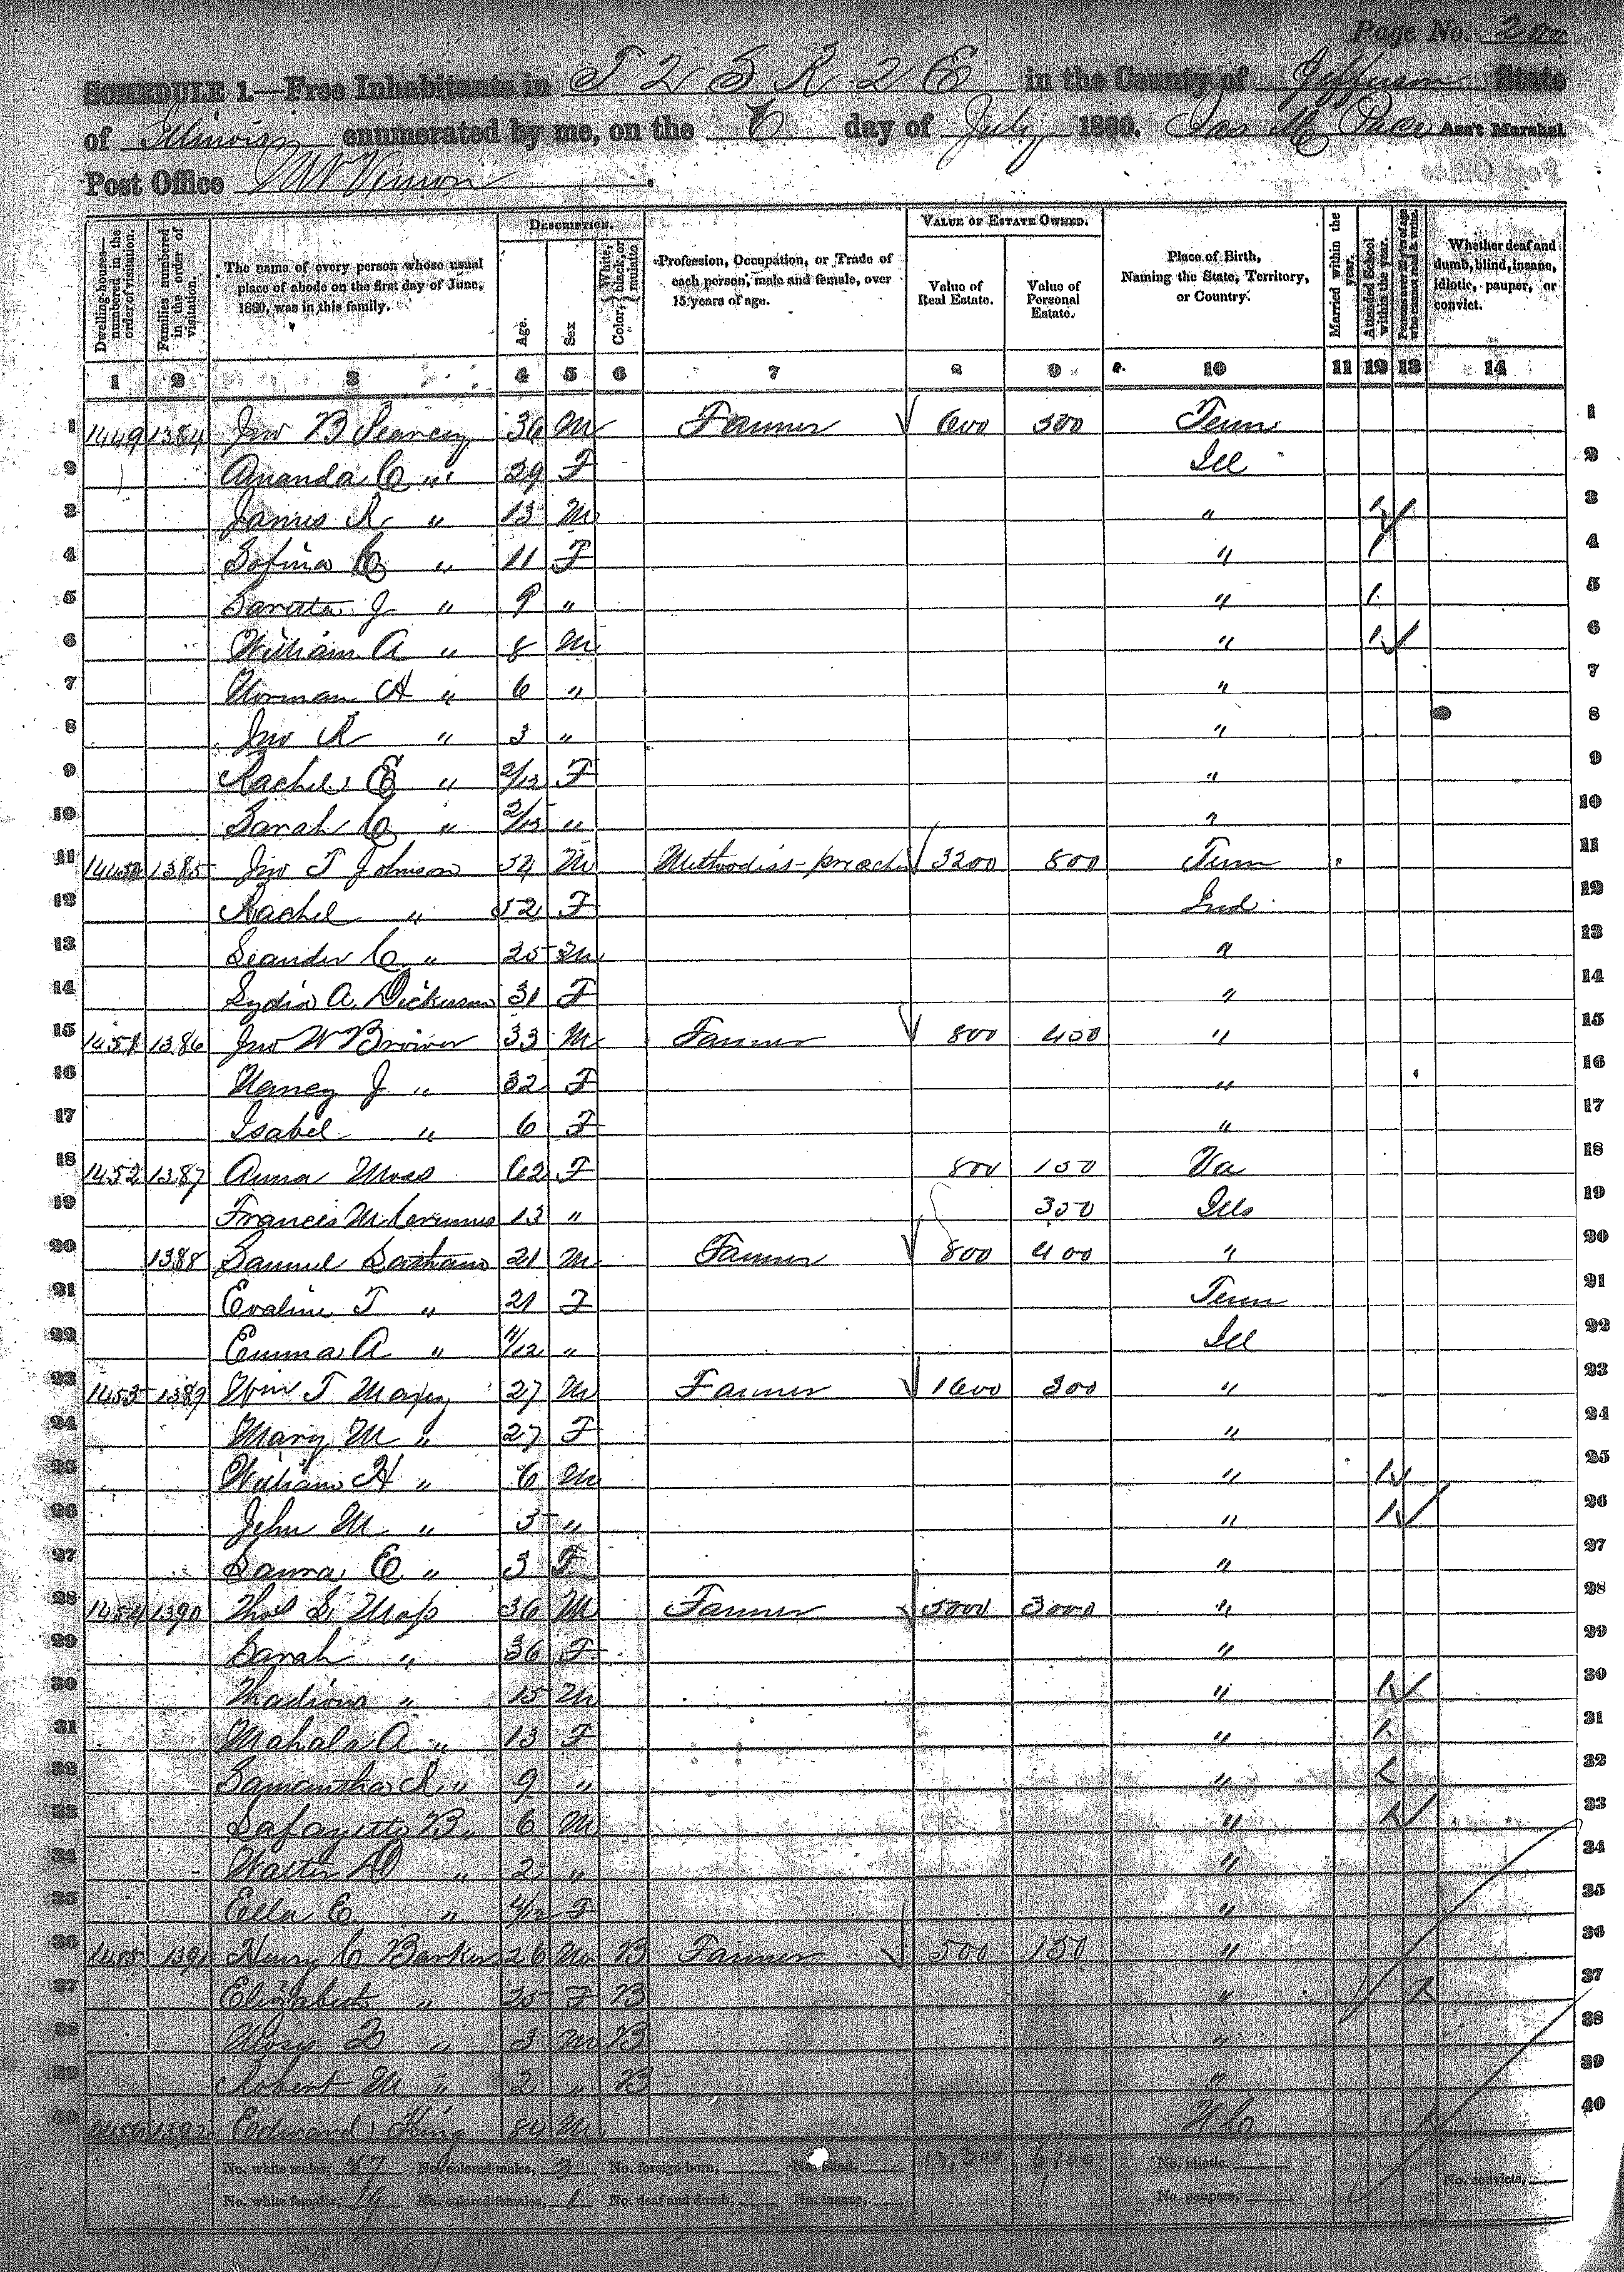 Page No. 200
SCHEDULE 1.—Free Inhabitants in T 2 S R 2 E in the County of Jefferson State
of Illinois enumerated by me, on the 6 day of July 1860. Jas M Pace Ass't Marshal.
Post Office Mt Vernon.
Dwelling-houses—numbered in the order of visitation.
Families numbered in the order of visitation.
The name of every person whose usual place of abode on the first day of June, 1860, was in this family.
DESCRIPTION.
Age.
Sex
Color, White, black, or mulatto
Profession, Occupation, or Trade of each person, male and female, over 15 years of age.
VALUE OF ESTATE OWNED.
Value of Real Estate.
Value of Personal Estate.
Place of Birth, Naming the State, Territory, or Country.
Married within the year.
Attended School within the year.
Persons over 20 y'rs of age who cannot read & write.
Whether deaf and dumb, blind, insane, idiotic, pauper, or convict.
1 2 3 4 5 6 7 8 9 10 11 12 13 14
1 1449 1384 Jno B Searcy 36 M Farmer 600 500 Tenn 1
2 Amanda C " 29 F Ill 2
3 James R " 13 M " 1 3
4 C " 11 F " 1 4
5 J " 9 " " 1 5
6 William A " 8 M " 1 6
7 Norman H " 6 " " 7
8 Jno R " 3 " " 8
9 Rachel E " 2/12 F " 9
10 Sarah C " 2/12 " " 10
11 1450 1385 Jno T Johnson 54 M Methodist preacher 3200 800 Tenn 11
12 Rachel " 52 F Ind 12
13 Leander C " 25 M " 13
14 Lydia A. Dickerson 31 F " 14
15 1451 1386 Jno W Brower 33 M Farmer 800 450 " 15
16 Nancy J " 32 F " 16
17 Isabel " 6 F " 17
18 1452 1387 Anna Moss 62 F 800 150 Va 18
19 Francis M. 13 " 350 Ills 19
20 1388 Samuel 21 M Farmer 800 400 " 20
21 Evaline T " 21 F Tenn 21
22 Emma A " 4/12 " Ill 22
23 1453 1389 Wm T Maxey 27 M Farmer 1600 300 " 23
24 Mary M " 27 F " 24
25 William H " 6 M " 1 25
26 John M " 5 " " 1 26
27 Laura E " 3 F " 27
28 1454 1390 Thos S. Moss 36 M Farmer 5000 3000 " 28
29 Sarah " 36 F " 29
30 " 15 M " 1 30
31 Mahala A " 13 F " 1 31
32 Samantha R " 9 " " 1 32
33 Lafayette B " 6 M " 1 33
34 Walter D " 2 " " 34
35 Ella E " 4/12 F " 35
36 1455 1391 Henry C Barker 26 M B Farmer 500 150 " 36
37 Elizabeth " 25 F B " 1 37
38 " 3 M B " 38
39 Robert M " 2 " B " 39
40 1456 1392 Edward King 84 M N C 1 40
No. white males, No. colored males, 3 No. foreign born, No. blind, 13,300 6,100 No. idiotic.
No. white females, 19 No. colored females, 1 No. deaf and dumb, No. insane, No. paupers, No. convicts,